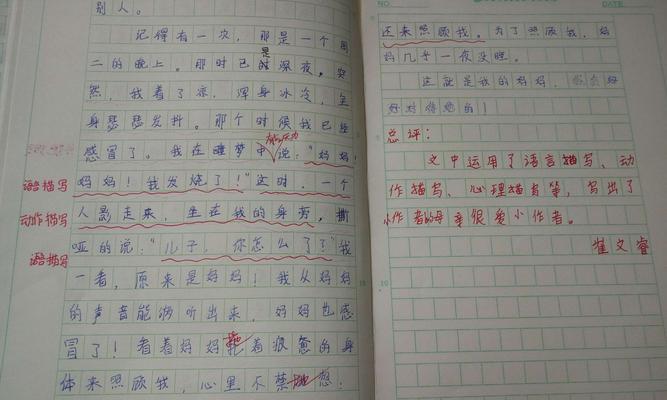 别人。
记得有一次，那是一个周
二的晚上。那时已是深夜。突
然，我着了凉，浑身冰冷，全
身瑟瑟发抖。那个时候我已经
感冒了。我在睡梦中说："妈妈！
语言描写
妈妈！我发烧了！"这时，一个
动作描写
人影走来，坐在我的身旁，撕
语言描写
哑的说："儿子，你怎么了？"我
一看，原来是妈妈！我从妈妈
的声音能够听出来，妈妈也感
冒了！看着妈妈拖着疲惫的身
体来照顾我，心里不禁想：
NO
DATE
还来照顾我。为了照顾我，妈
妈几乎一夜没睡。
这就是我的妈妈，我会好
好对待她的！
总评：
文中运用了语言描写、动
作描写、心理描写等，写出了
小作者的母亲很爱小作者。
崔文睿